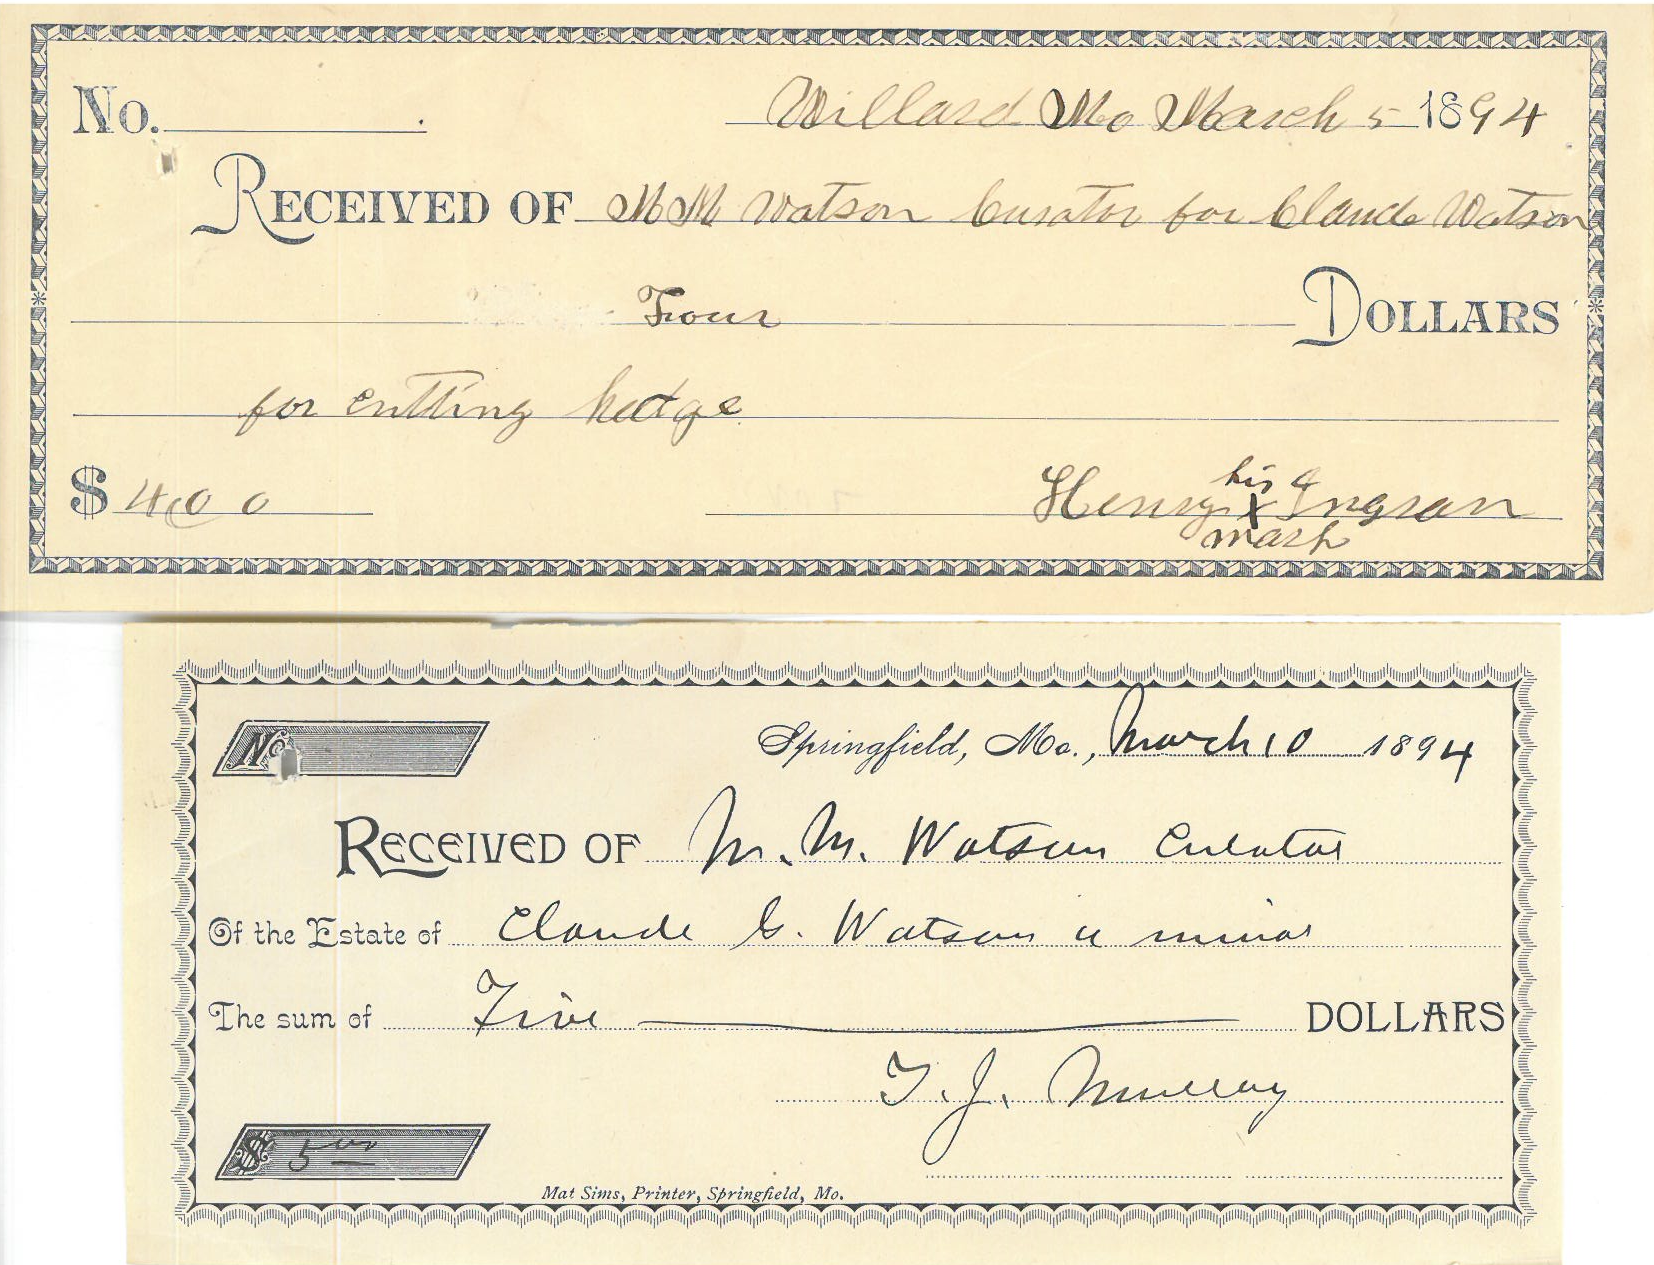 No. Willard Mo March 5 1894
RECEIVED OF M M Watson Curator for Claude Watson
Four DOLLARS
for cutting hedge
$ 4 00 Henry his x mark Ingram
No. Springfield, Mo., March 10 1894
RECEIVED OF M. M. Watson Curator
Of the Estate of Claude G. Watson a minor
The sum of Five DOLLARS
T. J. Murray
$ 5 00
Mat Sims, Printer, Springfield, Mo.